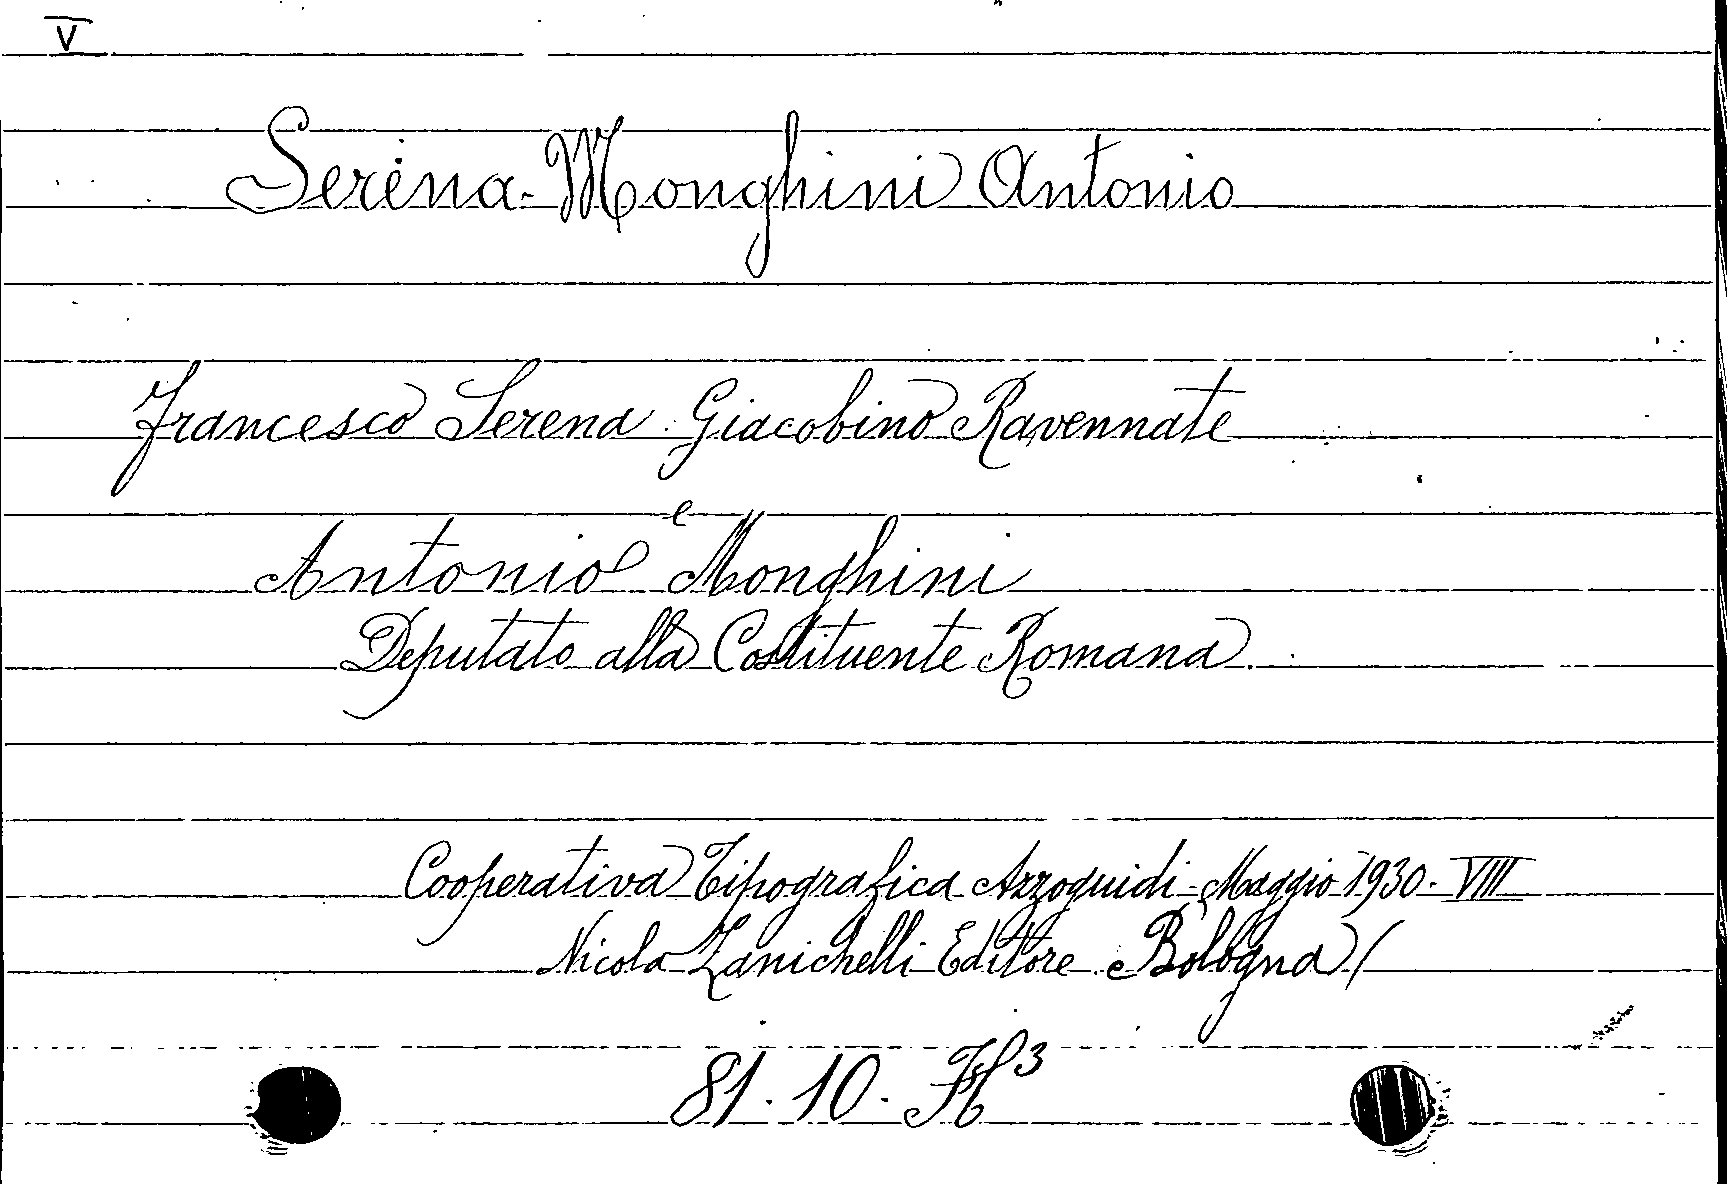 V
Serena-Monghini Antonio
Francesco Serena Giacobino Ravennate
e
Antonio Monghini
Deputato alla Costituente Romana
Cooperativa Tipografica Azzoguidi - Maggio 1930. VIII
Nicola Zanichelli Editore Bologna /
81. 10. H³